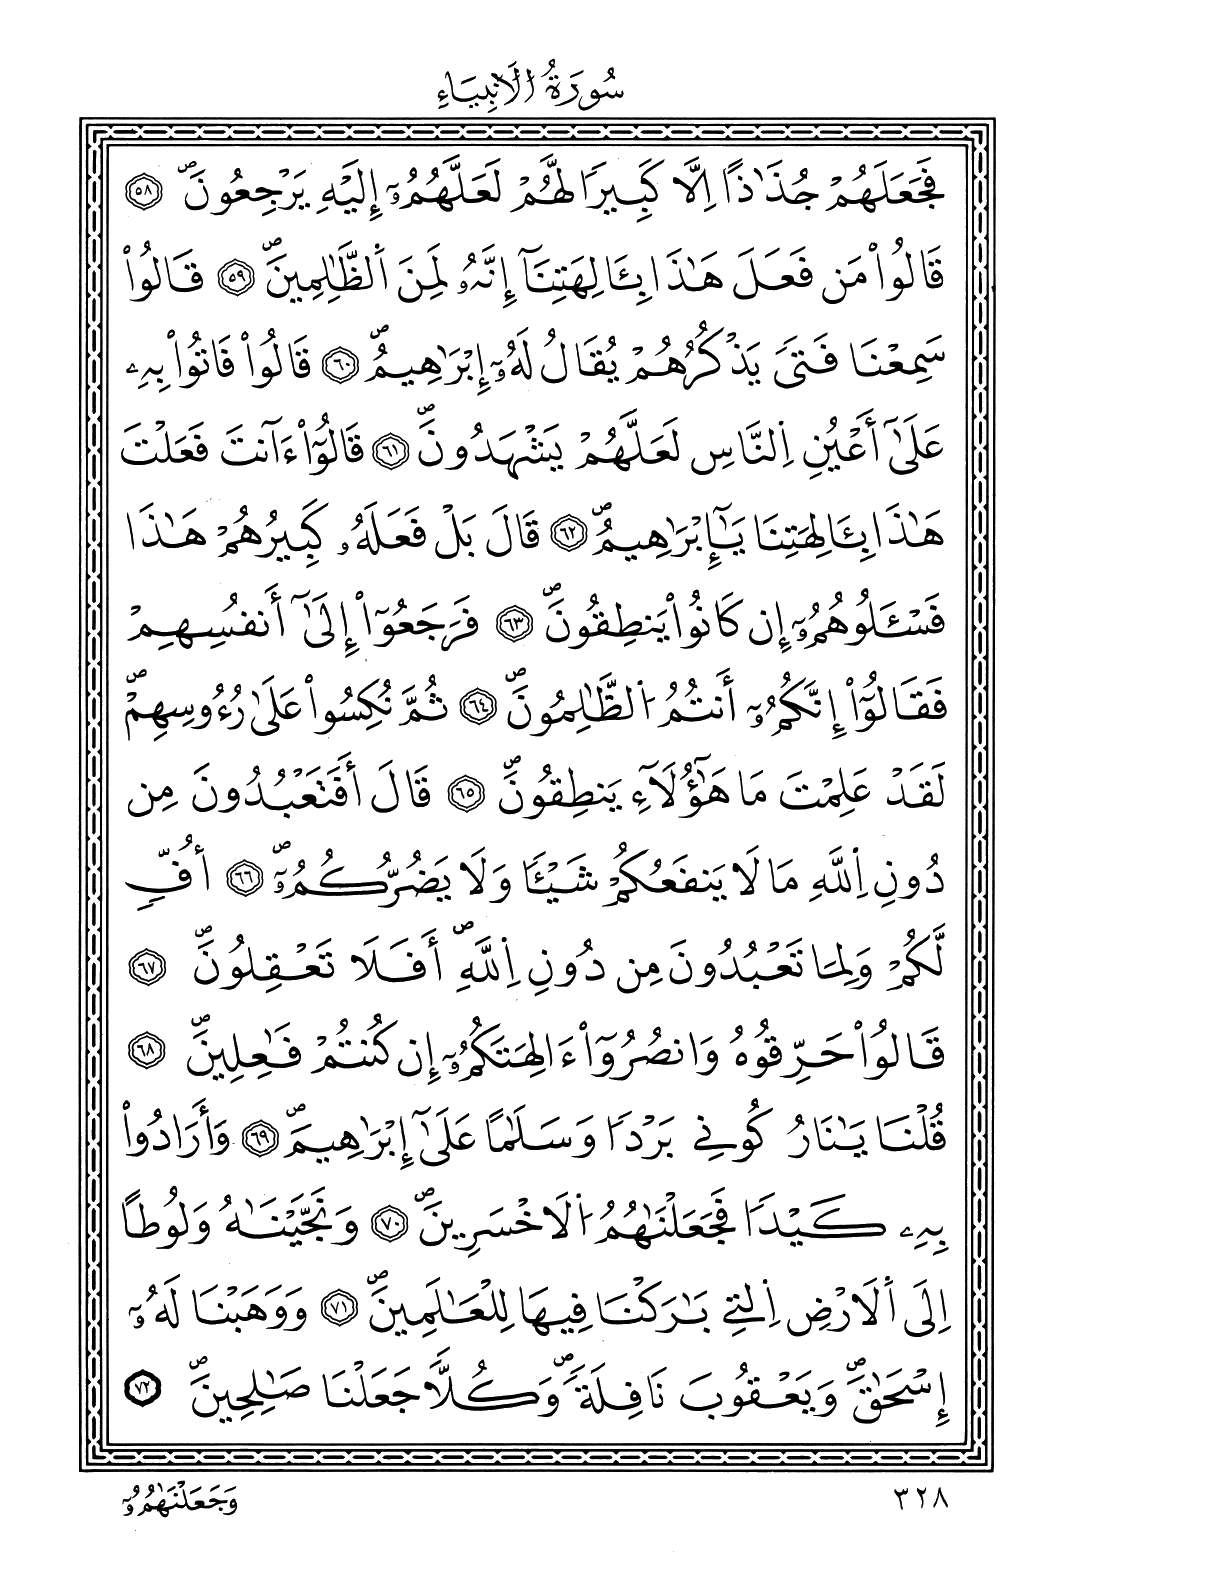 سُورَةُ الَانۢبِيَاءِ
فَجَعَلَهُمْ جُذَٰذًا اِلَّا كَبِيرٗا لَّهُمْ لَعَلَّهُمُۥٓ إِلَيْهِ يَرْجِعُونَۖ ٥٨
قَالُواْ مَن فَعَلَ هَٰذَا بِـَٔالِهَتِنَآ إِنَّهُۥ لَمِنَ اَلظَّٰلِمِينَۖ ٥٩ قَالُواْ
سَمِعْنَا فَتىٗ يَذْكُرُهُمْ يُقَالُ لَهُۥٓ إِبْرَٰهِيمُۖ ٦٠ قَالُواْ فَاتُواْ بِهِۦ
عَلَىٰٓ أَعْيُنِ اِلنَّاسِ لَعَلَّهُمْ يَشْهَدُونَۖ ٦١ قَالُوٓاْ ءَآنتَ فَعَلْتَ
هَٰذَا بِـَٔالِهَتِنَا يَٰٓإِبْرَٰهِيمُۖ ٦٢ قَالَ بَلْ فَعَلَهُۥ كَبِيرُهُمْ هَٰذَا
فَسْـَٔلُوهُمُۥٓ إِن كَانُواْ يَنطِقُونَۖ ٦٣ فَرَجَعُوٓاْ إِلَىٰٓ أَنفُسِهِمْ
فَقَالُوٓاْ إِنَّكُمُۥٓ أَنتُمُ اُلظَّٰلِمُونَۖ ٦٤ ثُمَّ نُكِسُواْ عَلَىٰ رُءُوسِهِمْۖ
لَقَدْ عَلِمْتَ مَا هَٰٓؤُلَآءِ يَنطِقُونَۖ ٦٥ قَالَ أَفَتَعْبُدُونَ مِن
دُونِ اِللَّهِ مَا لَا يَنفَعُكُمْ شَيْـٔٗا وَلَا يَضُرُّكُمُۥٓۖ ٦٦ أُفّٖ
لَّكُمْ وَلِمَا تَعْبُدُونَ مِن دُونِ اِللَّهِۖ أَفَلَا تَعْقِلُونَۖ ٦٧
قَالُواْ حَرِّقُوهُ وَانصُرُوٓاْ ءَالِهَتَكُمُۥٓ إِن كُنتُمْ فَٰعِلِينَۖ ٦٨
قُلْنَا يَٰنَارُ كُونِے بَرْدٗا وَسَلَٰمًا عَلَىٰٓ إِبْرَٰهِيمَۖ ٦٩ وَأَرَادُواْ
بِهِۦ كَيْدٗا فَجَعَلْنَٰهُمُ اُلَاخْسَرِينَۖ ٧٠ وَنَجَّيْنَٰهُ وَلُوطًا
اِلَى اَلَارْضِ اِلتِے بَٰرَكْنَا فِيهَا لِلْعَٰلَمِينَۖ ٧١ وَوَهَبْنَا لَهُۥٓ
إِسْحَٰقَۖ وَيَعْقُوبَ نَافِلَةٗۖ وَكُلّٗا جَعَلْنَا صَٰلِحِينَۖ ٧٢
٣٢٨
وَجَعَلْنَٰهُمُۥٓ